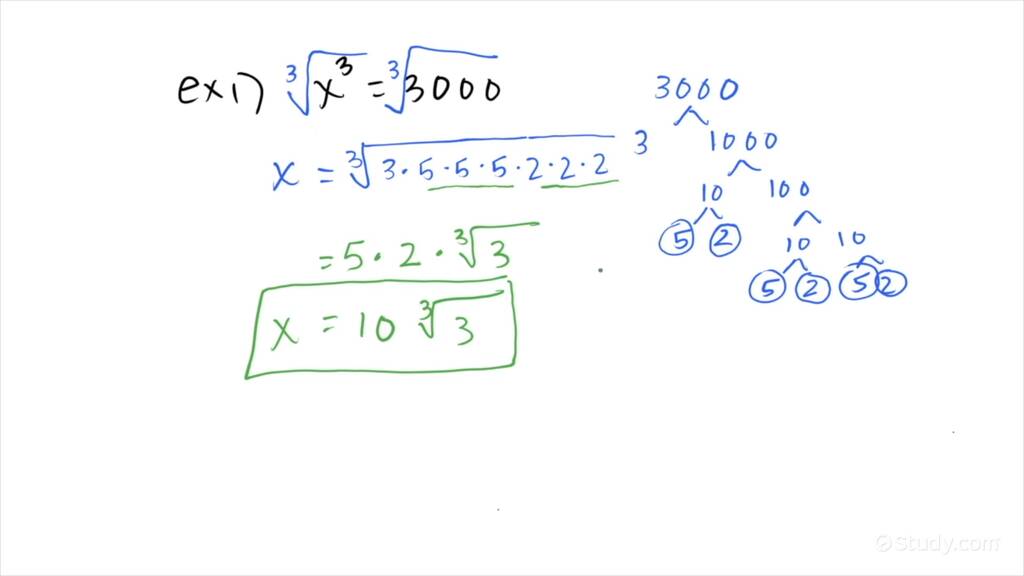 ex1) ∛x³ = ∛3000
x = ∛3·5·5·5·2·2·2
= 5·2·∛3
x = 10 ∛3
3000
3 1000
10 100
5 2 10 10
5 2 5 2
Study.com